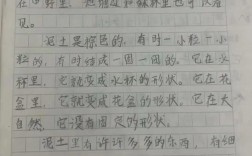 在田野里，
见。
泥土是棕色的，有时一小粒一小
粒的，有时结成一团一团的。它在水
杯里，它就变成水杯的形状。它在花
盆里，它就变成花盆的形状。它在大
自然，它没有固定的形状。
泥土里有许许多多的东西，有细